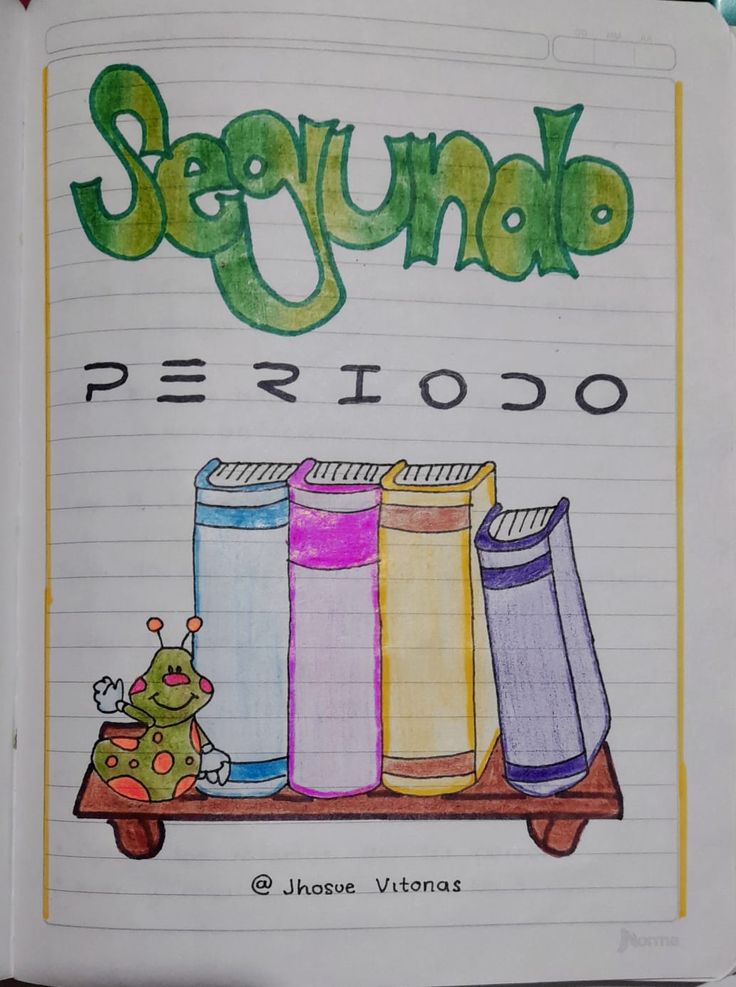 Segundo
PERIODO
@ Jhosue Vitonas
Norma